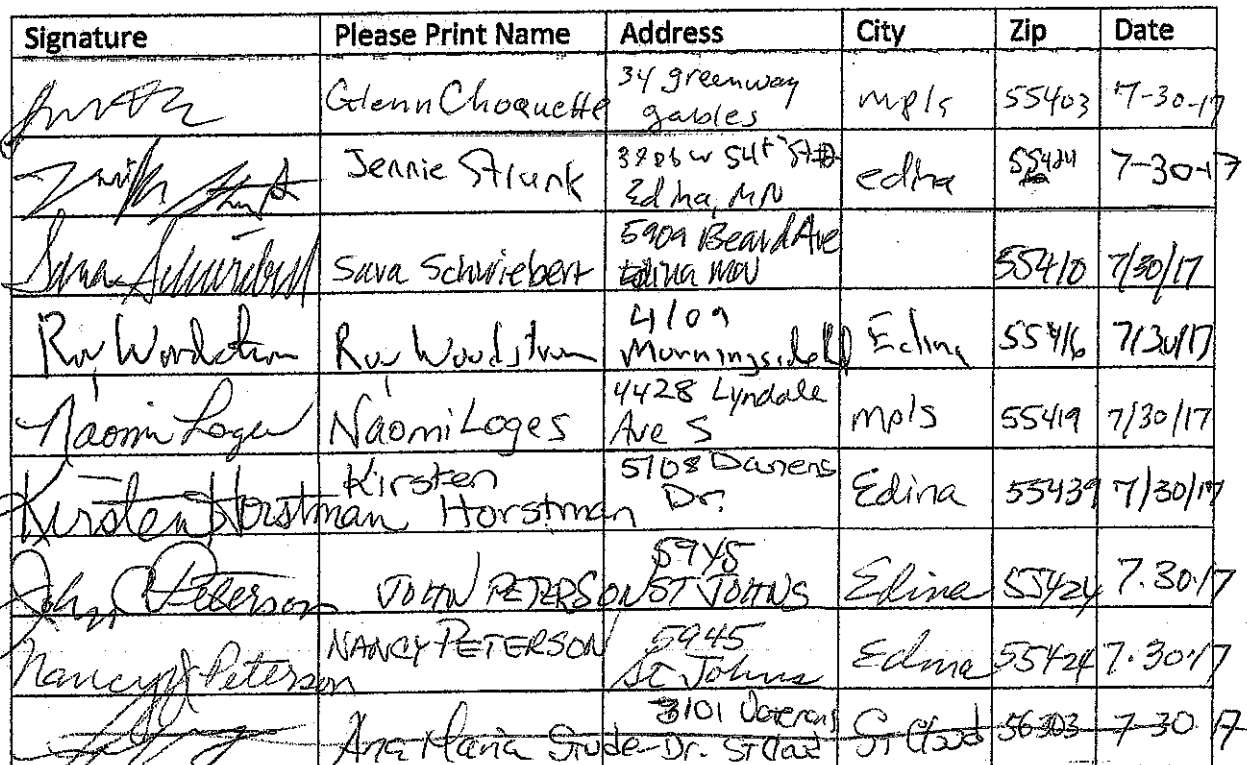 Signature Please Print Name Address City Zip Date
Glenn Choquette 34 greenway gables mpls 55403 7-30-17
Jennie Strunk 3806 w 54th St Edina, MN edina 55424 7-30-17
Sara Schwiebert Sara Schwiebert 5909 Beard Ave Edina MN 55410 7/30/17
Woodstrom 4109 Morningside Rd Edina 55416 7/30/17
Naomi Loges Naomi Loges 4428 Lyndale Ave S mpls 55419 7/30/17
Kirsten Horstman Kirsten Horstman 5108 Danens Dr. Edina 55439 7/30/17
John Peterson JOHN PETERSON 5945 ST JOHNS Edina 55424 7.30.17
Nancy J Peterson NANCY PETERSON 5945 St Johns Edina 55424 7.30.17
Ana Maria 3101 Veterans Dr. St Cloud St Cloud 56303 7-30 17